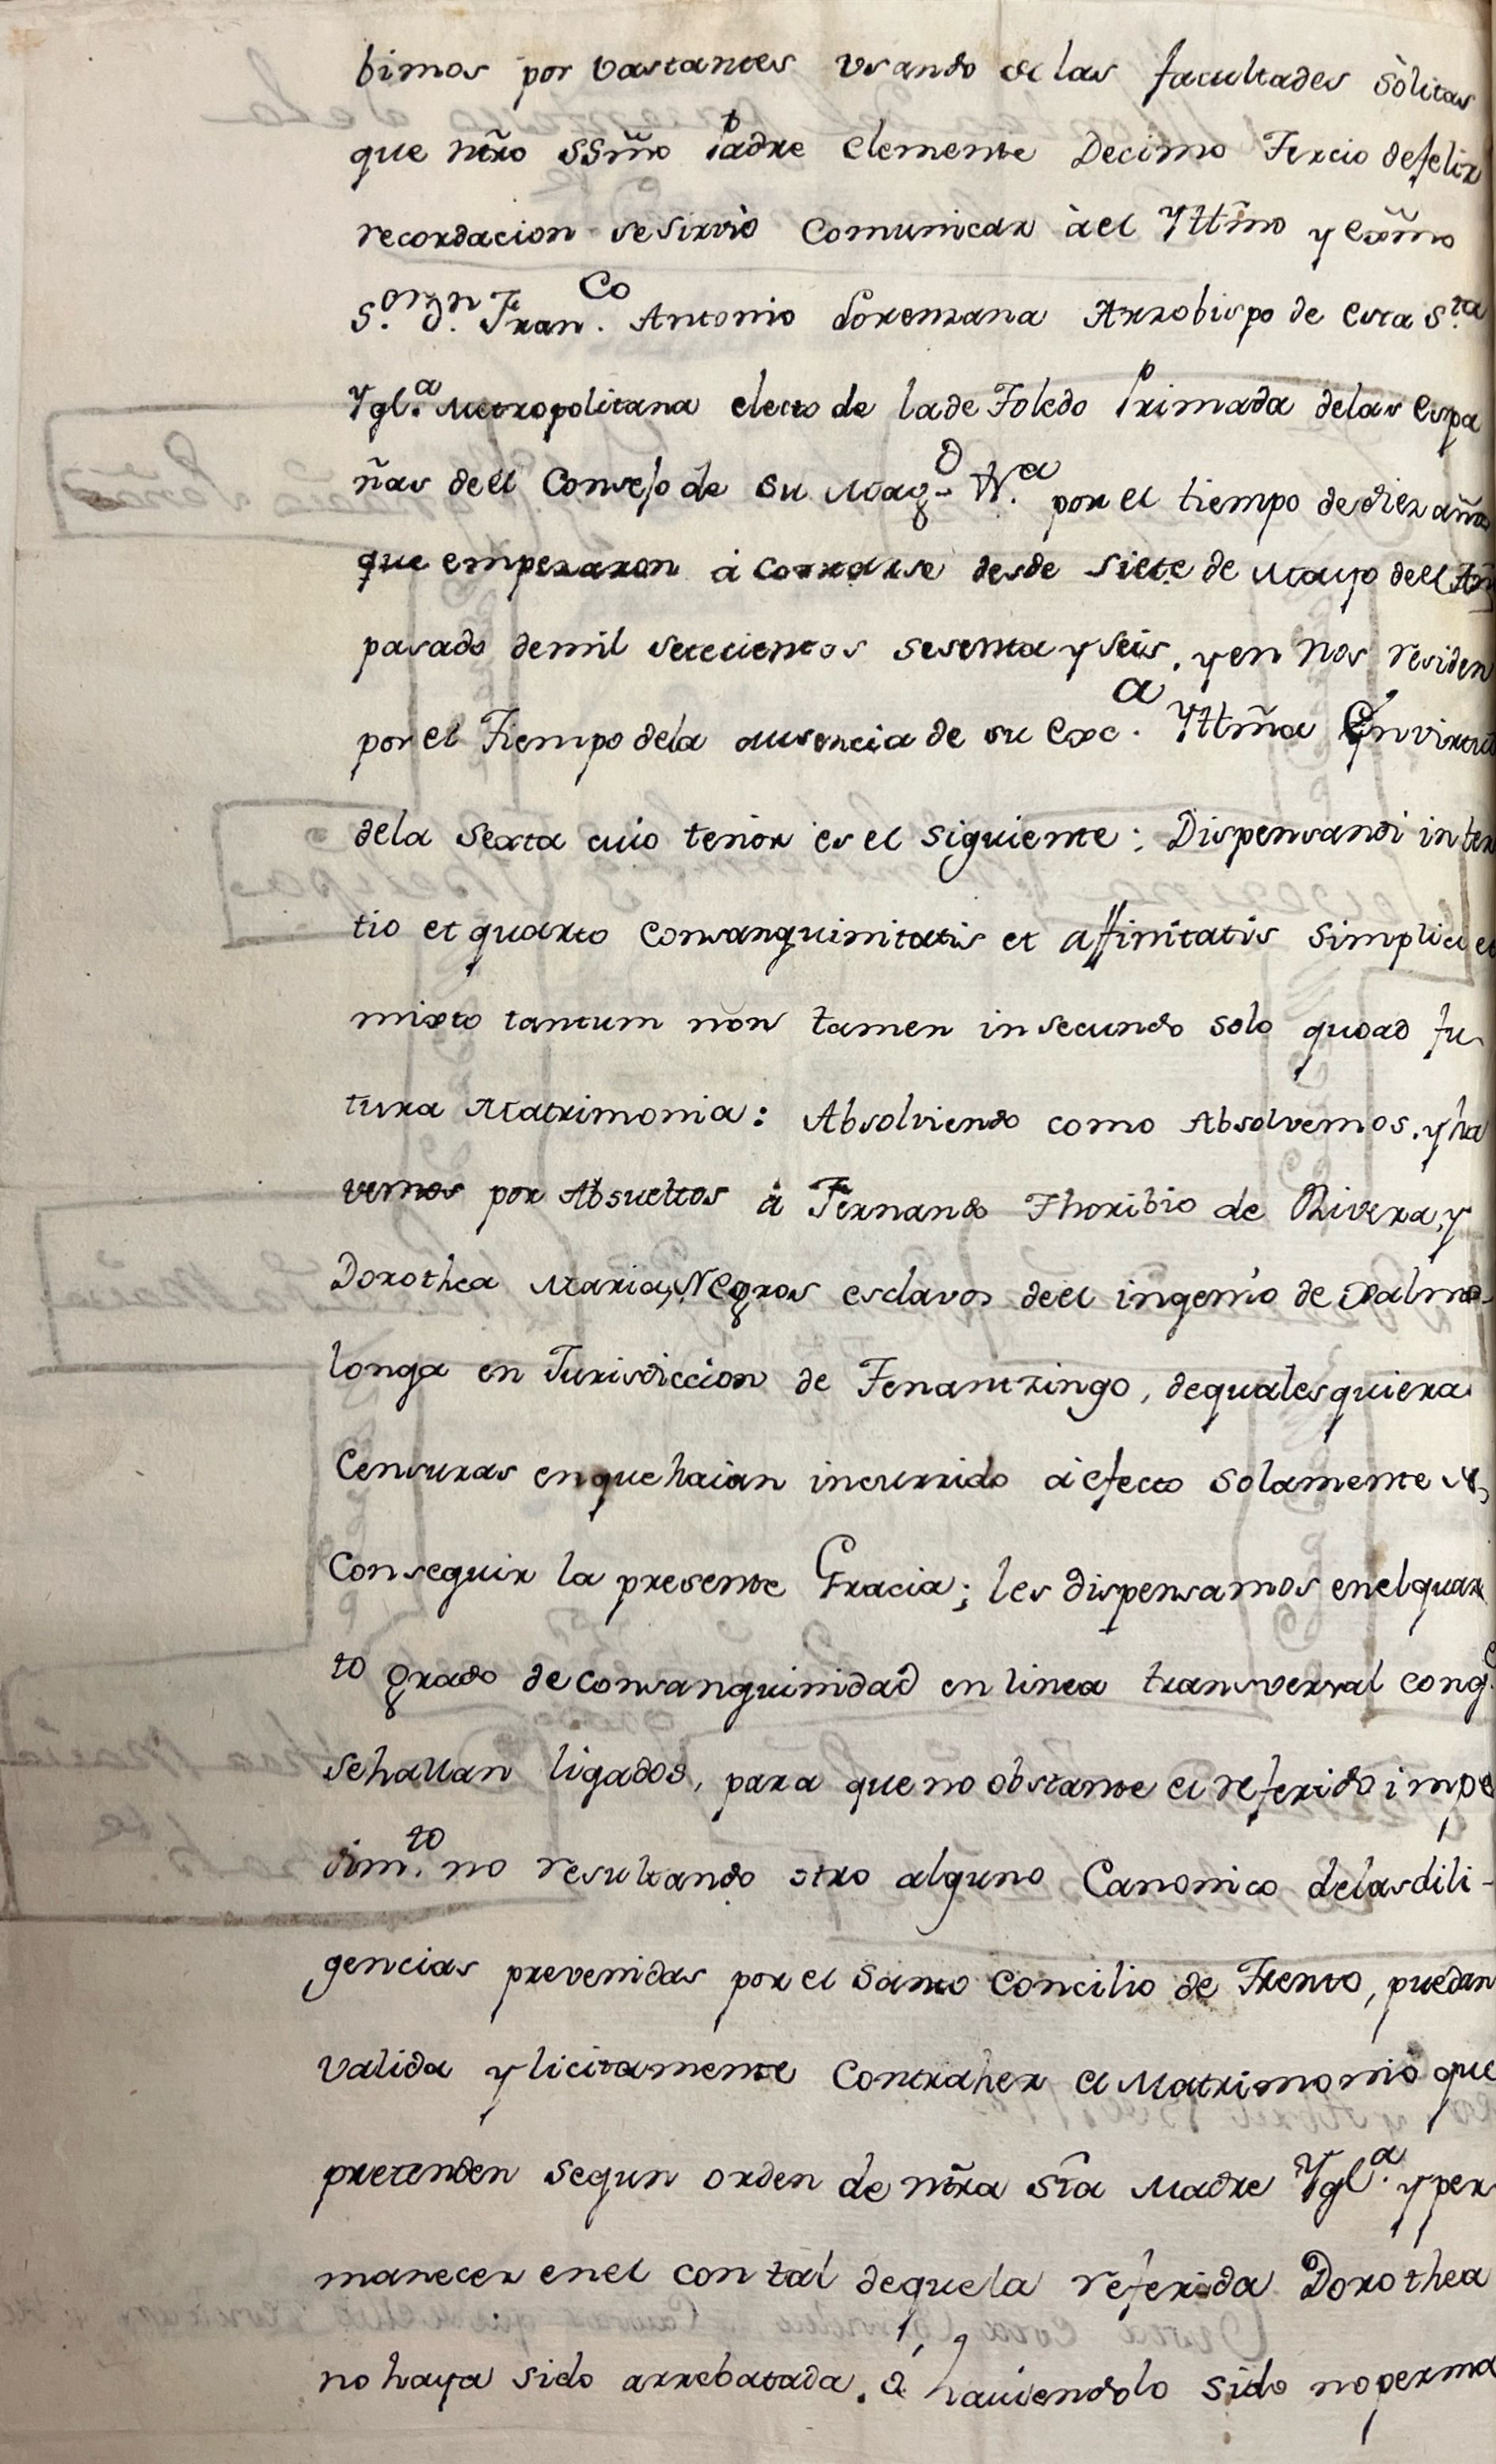 bimos por vastantes usando de las facultades sòlitas
que ntrõ SSmõ Padre Clemente Decimo Tercio defeliz
recordacion sesirviò Comunicar àel Yltmõ y Excmõ
S.or D.n Fran.co Antonio Lorenzana Arzobispo de esta S.ta
Ygl.a Metropolitana electo de lade Toledo Primada delas Espa
ñas dell Consejo de Su Mag.d &.a por el tiempo dediez años
que empezaron à contarse desde siete de Mayo dell Añ
pasado demil setecientos sesenta y seis, y en Nos residen
por el Tiempo dela ausencia de su Exc.a Yltmã En virtud
dela Sexta cuio tenor es el siguiente: Dispensandi in ter
tio et quarto Consanguinitatis et affinitatis simplici et
mixto tantum non tamen in secundo solo quoad fu-
tura Matrimonia: Absolviendo como Absolvemos, y ha
vemos por Absueltos à Fernando Thoribio de Rivera, y
Dorothea Maria, Negros esclavos dell ingenio de Xalmo-
longa en Jurisdiccion de Tenantzingo, dequalesquiera
Censuras enque haian incurrido àefecto solamente de
Conseguir la presente Gracia; les dispensamos enel quar
to grado de consanguinidad en linea transversal conq.e
sehallan ligados, para que no obstante el referido impe
dim.to no resultando otro alguno Canonico delas dili-
gencias prevenidas por el Santo Concilio de Trento, puedan
valida y licitamente Contraher el Matrimonio que
pretenden segun orden de ntrã Stã Madre Ygl.a y per
manecer enel con tal dequela referida Dorothea
no haya sido arrebatada, ò haviendolo sido no perma